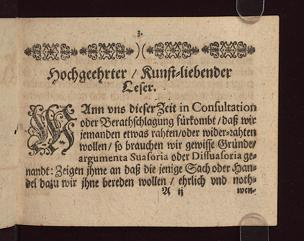 3.
Hochgeehrter / Kunst-liebender
Leser.
WAnn vns dieser Zeit in Consultation
oder Berathschlagung fürkombt / daß wir
jemanden etwas rahten / oder wider-rahten
wollen / so brauchen wir gewisse Gründe /
argumenta Suasoria oder Dissuasoria ge-
nandt: Zeigen ihme an daß die jenige Sach oder Han-
del dazu wir ihne bereden wollen / ehrlich vnd noth-
A ij wen-